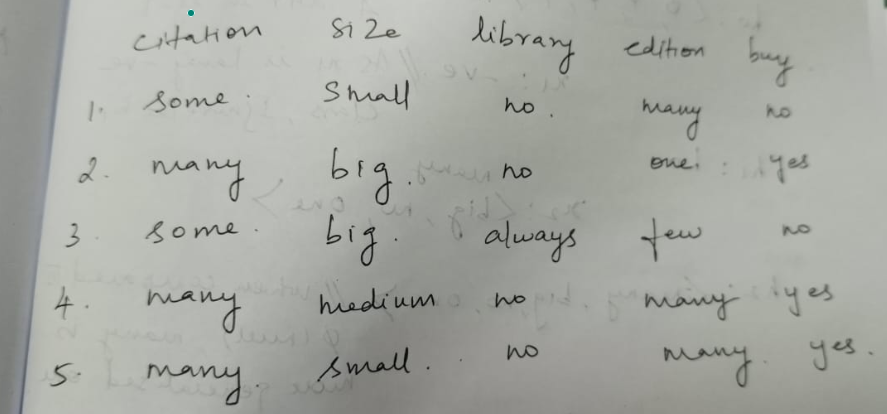 citation size library edition buy
1. some. small no. many no
2. many big. no one. : yes
3. some. big. always few no
4. many medium no many yes
5. many. small. no many. yes.